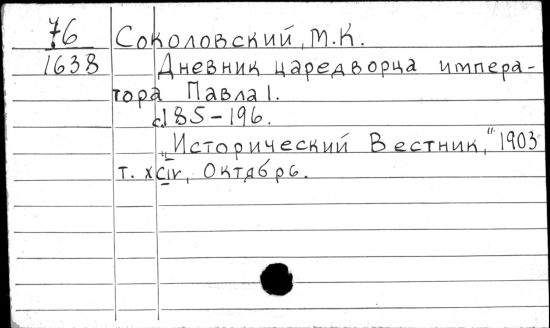 76 Соколовский, М.К.
1638 Дневник царедворца импера-
тора Павла I.
с.185-196.
„Исторический Вестник," 1903
т. XCIV, Октябрь.